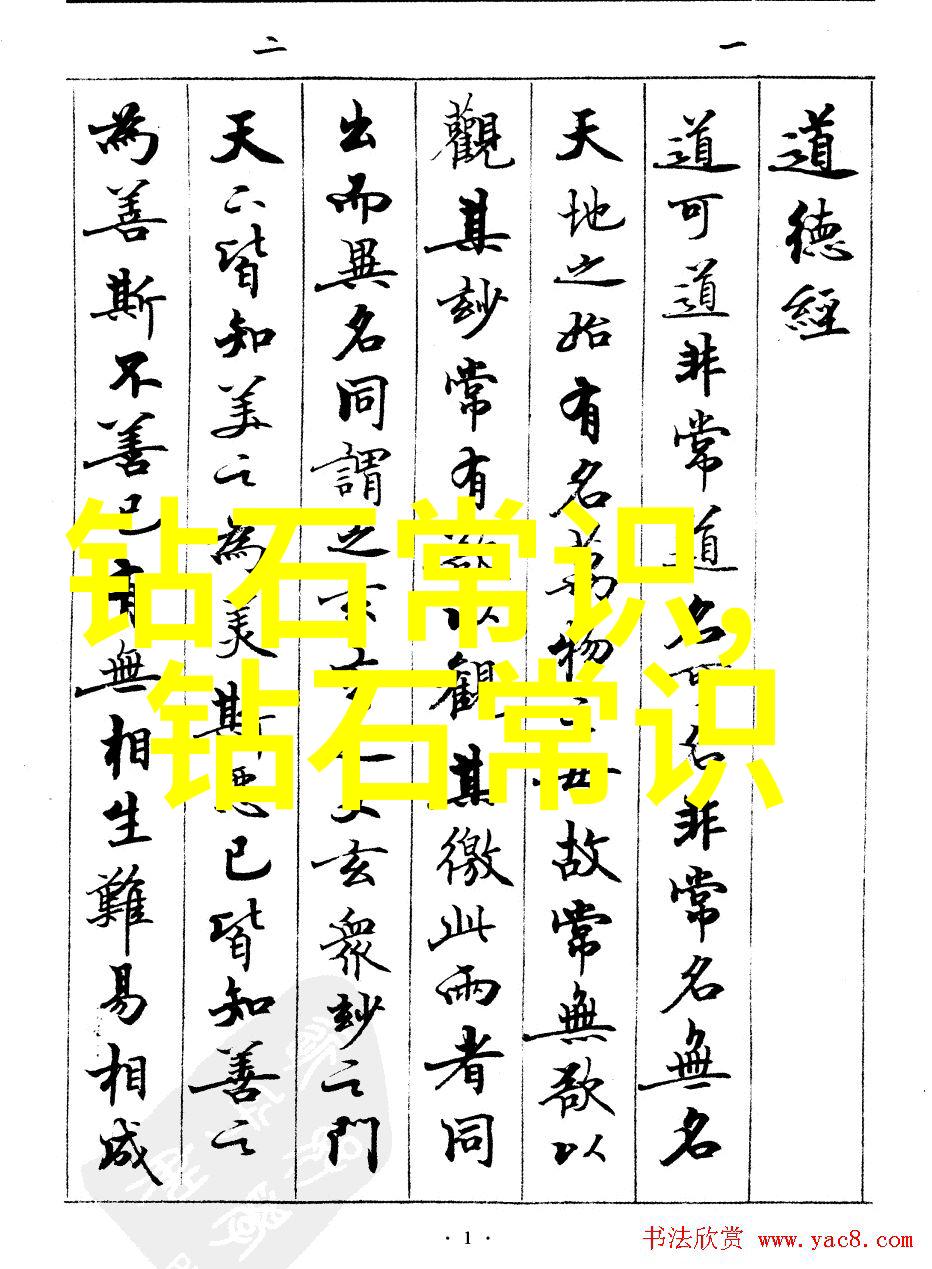 一
二
道德經
道可道非常道名可名非常名無名
天地之始有名萬物之母故常無欲以
觀其玅常有欲以觀其徼此兩者同
出而異名同謂之玄玄之又玄眾玅之門
天下皆知美之為美斯惡已皆知善之
為善斯不善已有無相生難易相成
钻石常识,
钻石常识
· 1 ·
书法欣赏 www.yac8.com